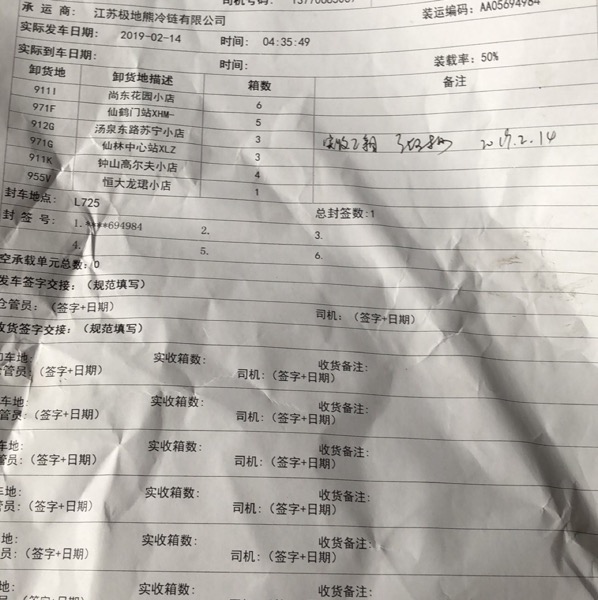 承 运 商： 江苏极地熊冷链有限公司 司机号码： 装运编码：AA05694984
实际发车日期： 2019-02-14 时间： 04:35:49
实际到车日期： 时间： 装载率：50%
卸货地 卸货地描述 箱数 备注
911I 尚东花园小店 6
971F 仙鹤门站XHM- 5
912G 汤泉东路苏宁小店 3
971G 仙林中心站XLZ 3 实收2箱 2019.2.14
911K 钟山高尔夫小店 4
955V 恒大龙珺小店 1
封车地点： L725 总封签数：1
封 签 号： 1.****694984 2. 3.
4. 5. 6.
空承载单元总数：0
发车签字交接：（规范填写）
仓管员：（签字+日期） 司机：（签字+日期）
收货签字交接：（规范填写）
卸车地： 实收箱数： 收货备注：
仓管员：（签字+日期） 司机：（签字+日期）
车地： 实收箱数： 收货备注：
管员：（签字+日期） 司机：（签字+日期）
车地： 实收箱数： 收货备注：
管员：（签字+日期） 司机：（签字+日期）
车地： 实收箱数： 收货备注：
管员：（签字+日期） 司机：（签字+日期）
车地： 实收箱数： 收货备注：
员：（签字+日期） 司机：（签字+日期）
地： 实收箱数： 收货备注：